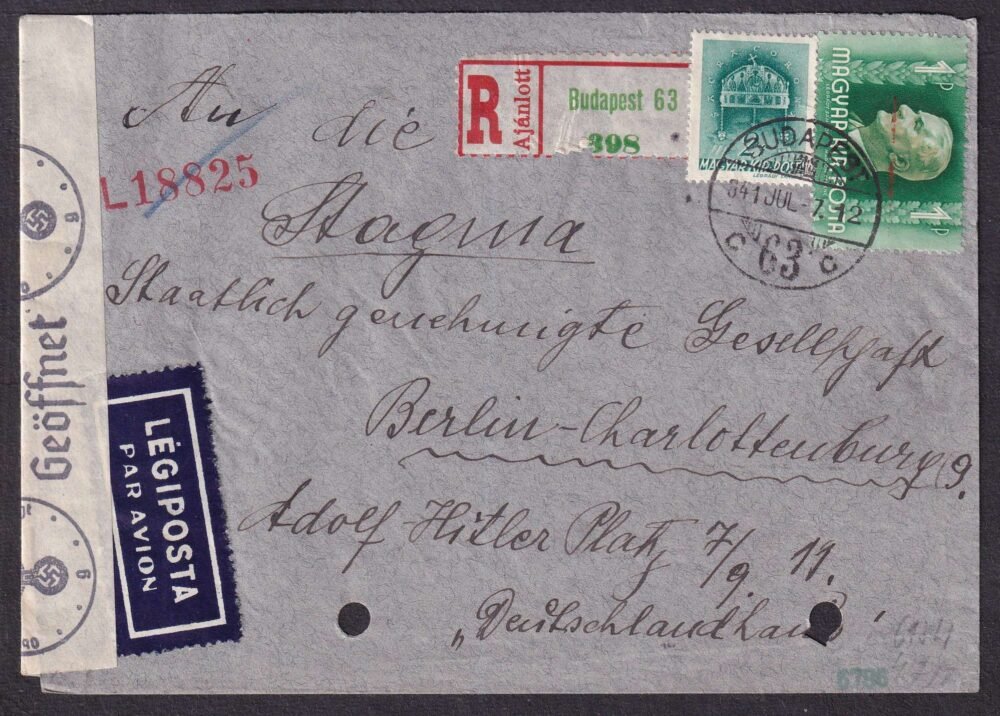 An die
Stagma
Staatlich genehmigte Gesellschaft
Berlin-Charlottenburg 9.
Adolf Hitler Platz 7/9. 11.
„Deutschlandhaus"
R
Ajánlott
Budapest 63
398
MAGYAR KIR. POSTA
1P
MAGYAR KIR. POSTA
1P
BUDAPEST
941 JUL -7. 12
C 63 C
L18825
Geöffnet
LÉGIPOSTA
PAR AVION
6796